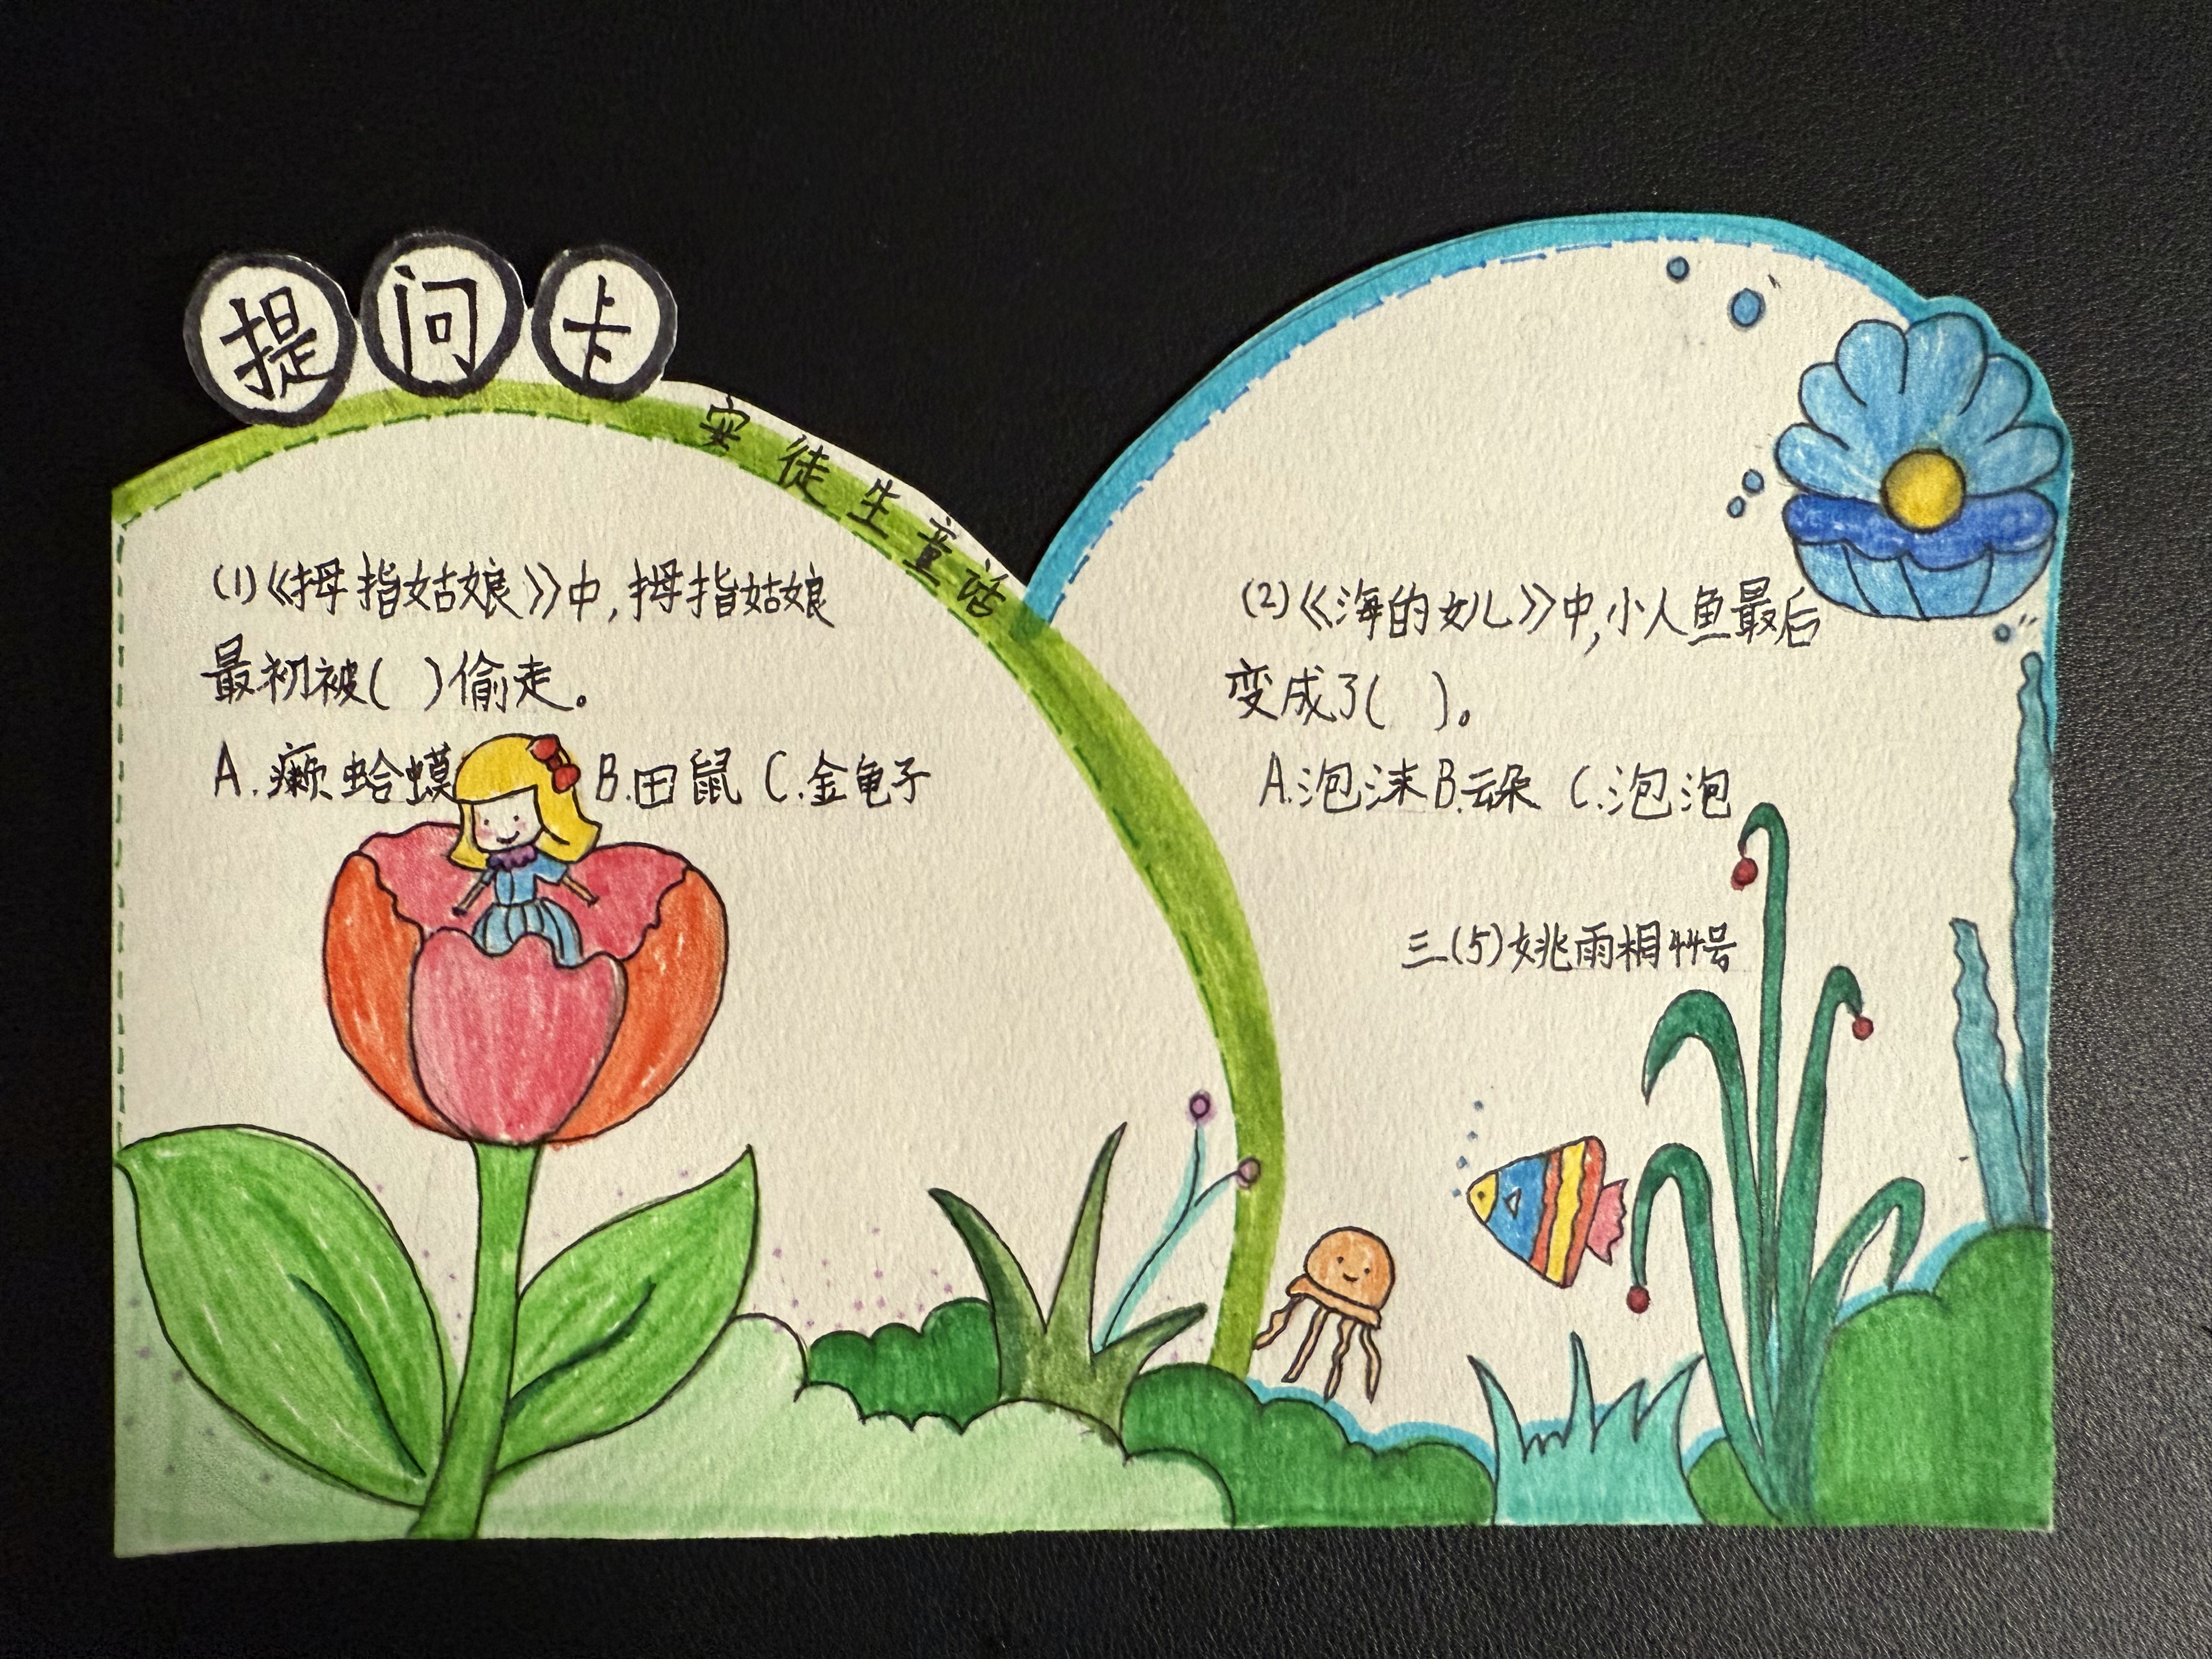 提问卡
安徒生童话
(1)《拇指姑娘》中,拇指姑娘
最初被( )偷走。
A.癞蛤蟆 B.田鼠 C.金龟子
(2)《海的女儿》中,小人鱼最后
变成了( )。
A.泡沫 B.云朵 C.泡泡
三(5)姚雨相44号